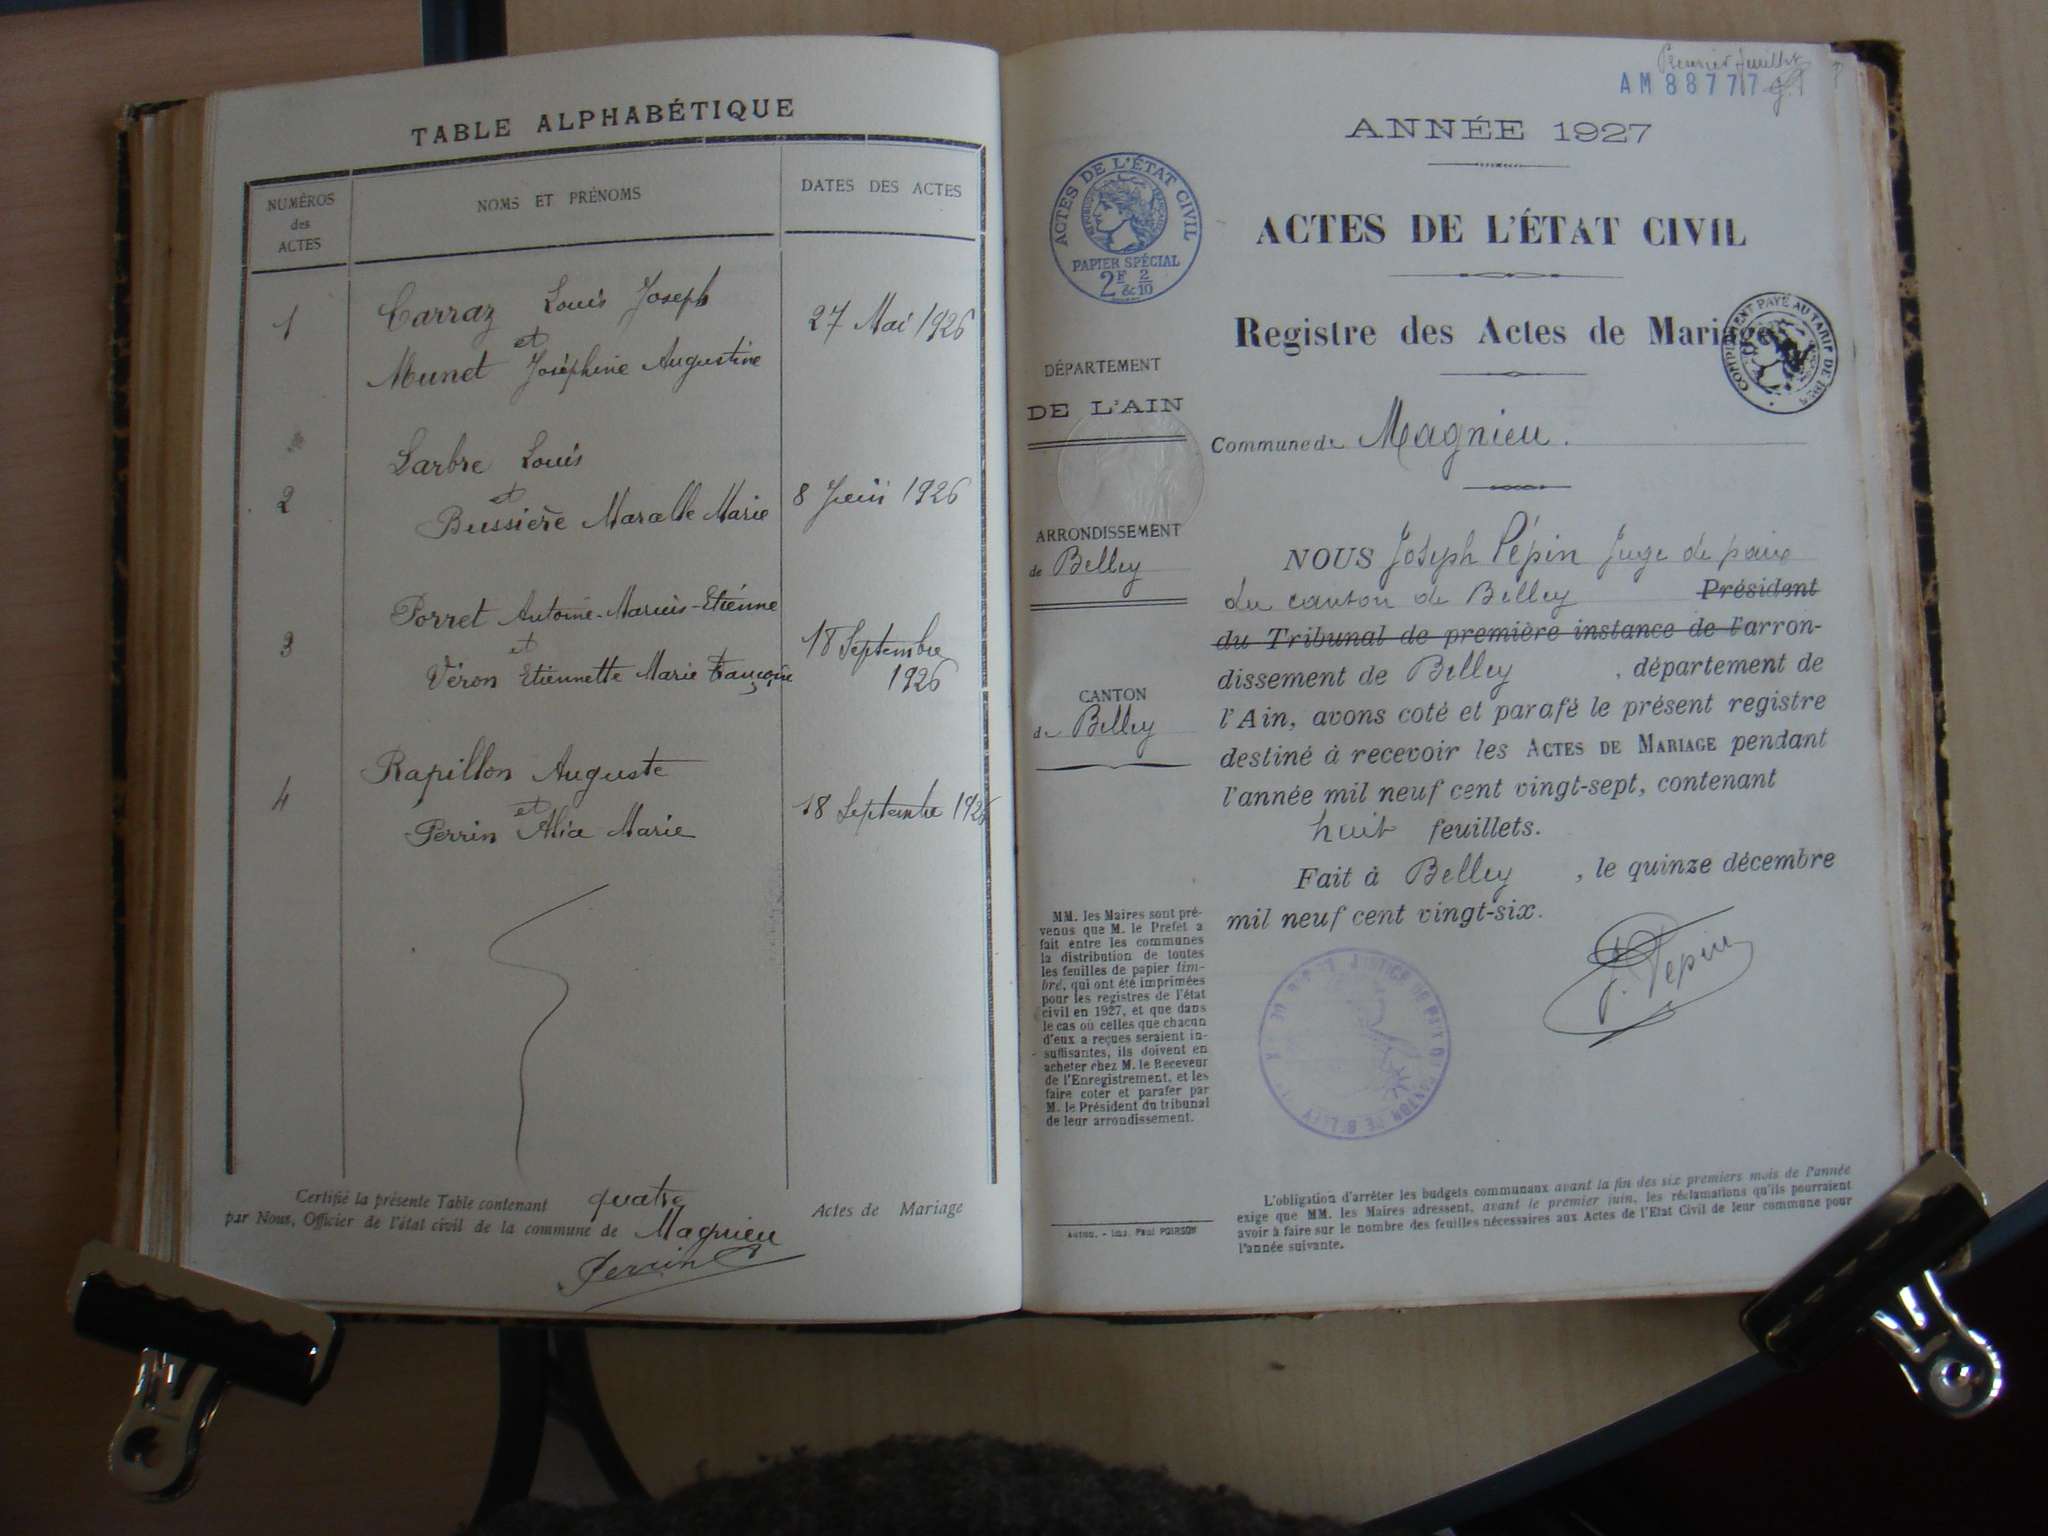 TABLE ALPHABÉTIQUE
NUMÉROS
des
ACTES
NOMS ET PRÉNOMS
DATES DES ACTES
1
Carraz Louis Joseph
et
Munet Joséphine Augustine
27 Mai 1926
2
Larbre Louis
et
Bussière Marcelle Marie
8 Juin 1926
3
Porret Antoine-Marius-Etienne
et
Véron Etiennette Marie Françoise
18 Septembre
1926
4
Rapillon Auguste
et
Perrin Alice Marie
18 Septembre 1926
Certifié la présente Table contenant quatre Actes de Mariage
par Nous, Officier de l'état civil de la commune de Magnieu
Perrin
Premier feuillet
AM 88777
ANNÉE 1927
ACTES DE L'ÉTAT CIVIL
PAPIER SPÉCIAL
2F & 2/10
ACTES DE L'ÉTAT CIVIL
Registre des Actes de Mariage
COMPLÉMENT PAYÉ AU TARIF DE
DÉPARTEMENT
DE L'AIN
Commune de Magnieu.
ARRONDISSEMENT
de Belley
CANTON
de Belley
NOUS Joseph Pépin Juge de paix
du canton de Belley Président
du Tribunal de première instance de l'arron-
dissement de Belley, département de
l'Ain, avons coté et parafé le présent registre
destiné à recevoir les ACTES DE MARIAGE pendant
l'année mil neuf cent vingt-sept, contenant
huit feuillets.
Fait à Belley, le quinze décembre
mil neuf cent vingt-six.
J. Pépin
JUSTICE DE PAIX D CANTON DE BELLEY
MM. les Maires sont pré-
venus que M. le Préfet a
fait entre les communes
la distribution de toutes
les feuilles de papier tim-
bré, qui ont été imprimées
pour les registres de l'état
civil en 1927, et que dans
le cas où celles que chacun
d'eux a reçues seraient in-
suffisantes, ils doivent en
acheter chez M. le Receveur
de l'Enregistrement, et les
faire coter et parafer par
M. le Président du tribunal
de leur arrondissement.
Autun. - Imp. Paul POIRSON
L'obligation d'arrêter les budgets communaux avant la fin des six premiers mois de l'année
exige que MM. les Maires adressent, avant le premier juin, les réclamations qu'ils pourraient
avoir à faire sur le nombre des feuilles nécessaires aux Actes de l'Etat Civil de leur commune pour
l'année suivante.